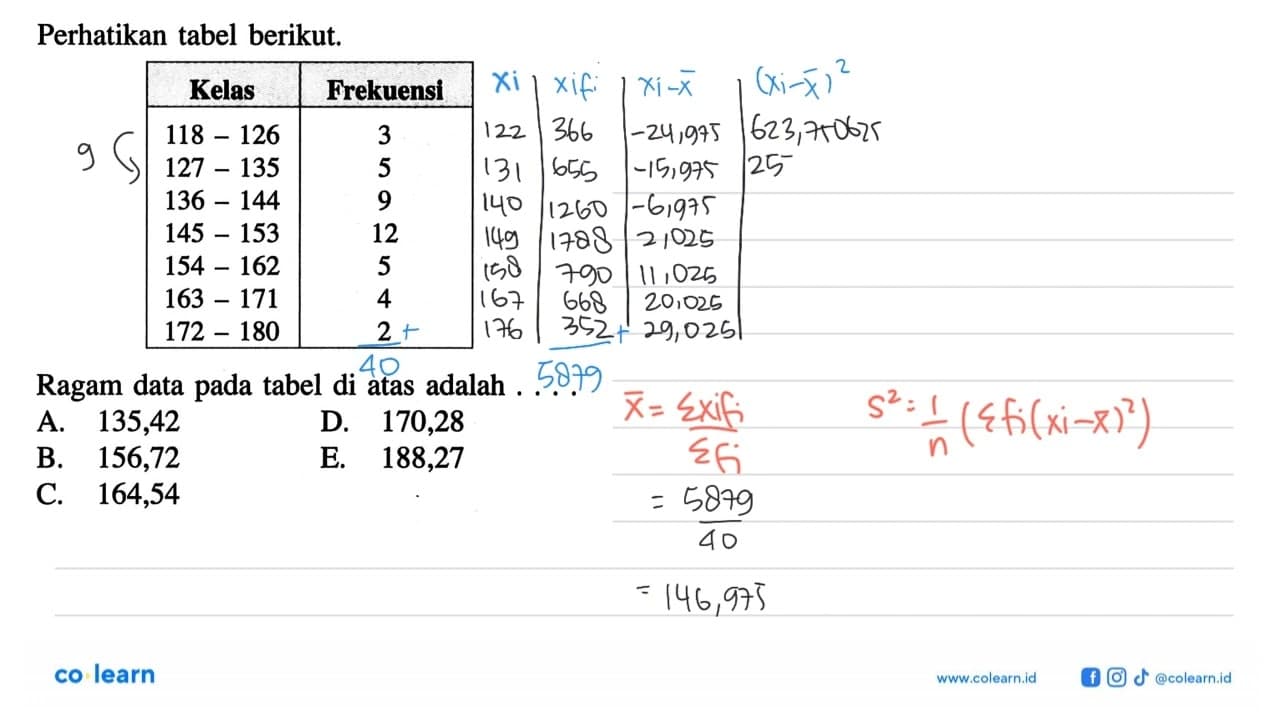 Perhatikan tabel berikut.
Kelas Frekuensi xi xifi xi-x̄ (xi-x̄)²
9
118 – 126 3 122 366 -24,975 623,750625
127 – 135 5 131 655 -15,975 25
136 – 144 9 140 1260 -6,975
145 – 153 12 149 1788 2,025
154 – 162 5 158 790 11,025
163 – 171 4 167 668 20,025
172 – 180 2 + 176 352 + 29,025
40 5879
Ragam data pada tabel di atas adalah . . . .
A. 135,42 D. 170,28
B. 156,72 E. 188,27
C. 164,54
x̄ = Σxifi / Σfi
= 5879 / 40
= 146,975
S² = 1/n (Σfi(xi-x̄)²)
co learn
www.colearn.id @colearn.id